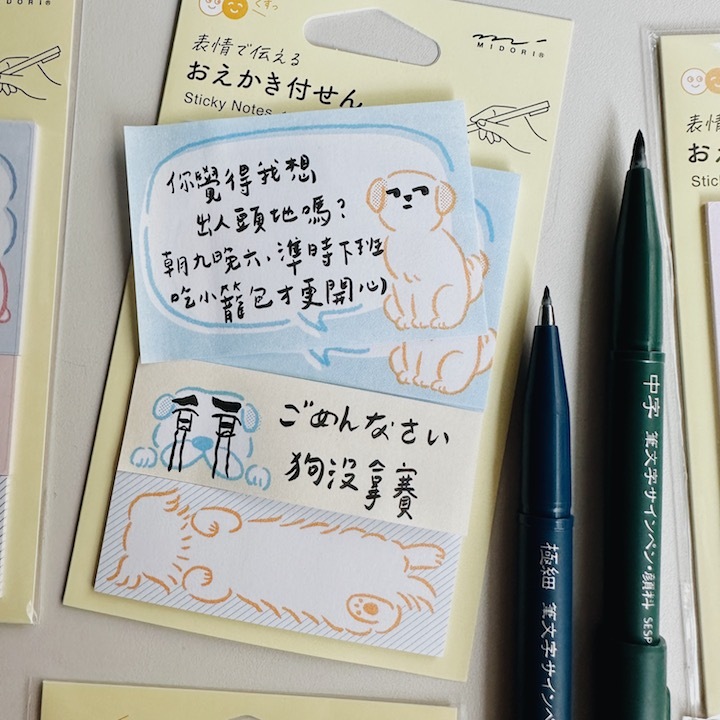 くすっ
MIDORI®
表情で伝える
おえかき付せん
Sticky Notes
你覺得我想
出人頭地嗎？
朝九晚六、準時下班
吃小籠包才更開心
ごめんなさい
狗沒拿賽
極細 筆文字サインペン
中字 筆文字サインペン・顔料 SESP
IDORI®
表情
おえ
Stick